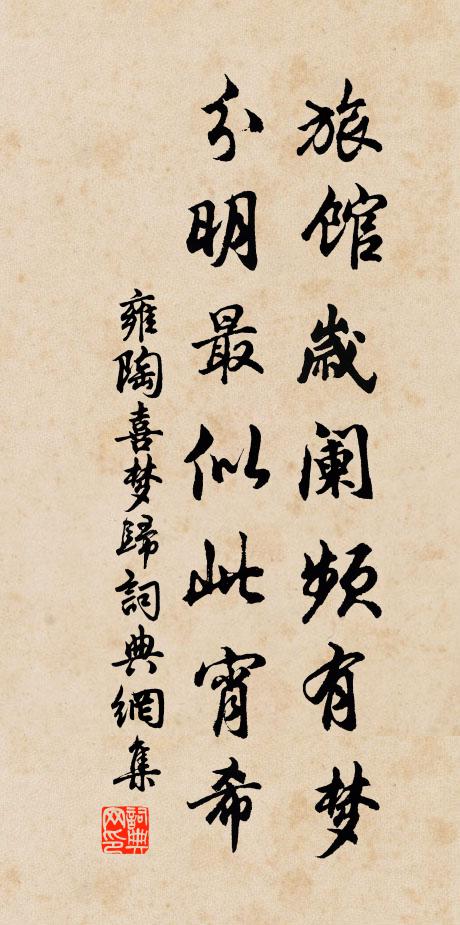 旅馆歳阑频有梦
分明最似此宵希
雍陶喜梦歸詞典網集
詞典网印